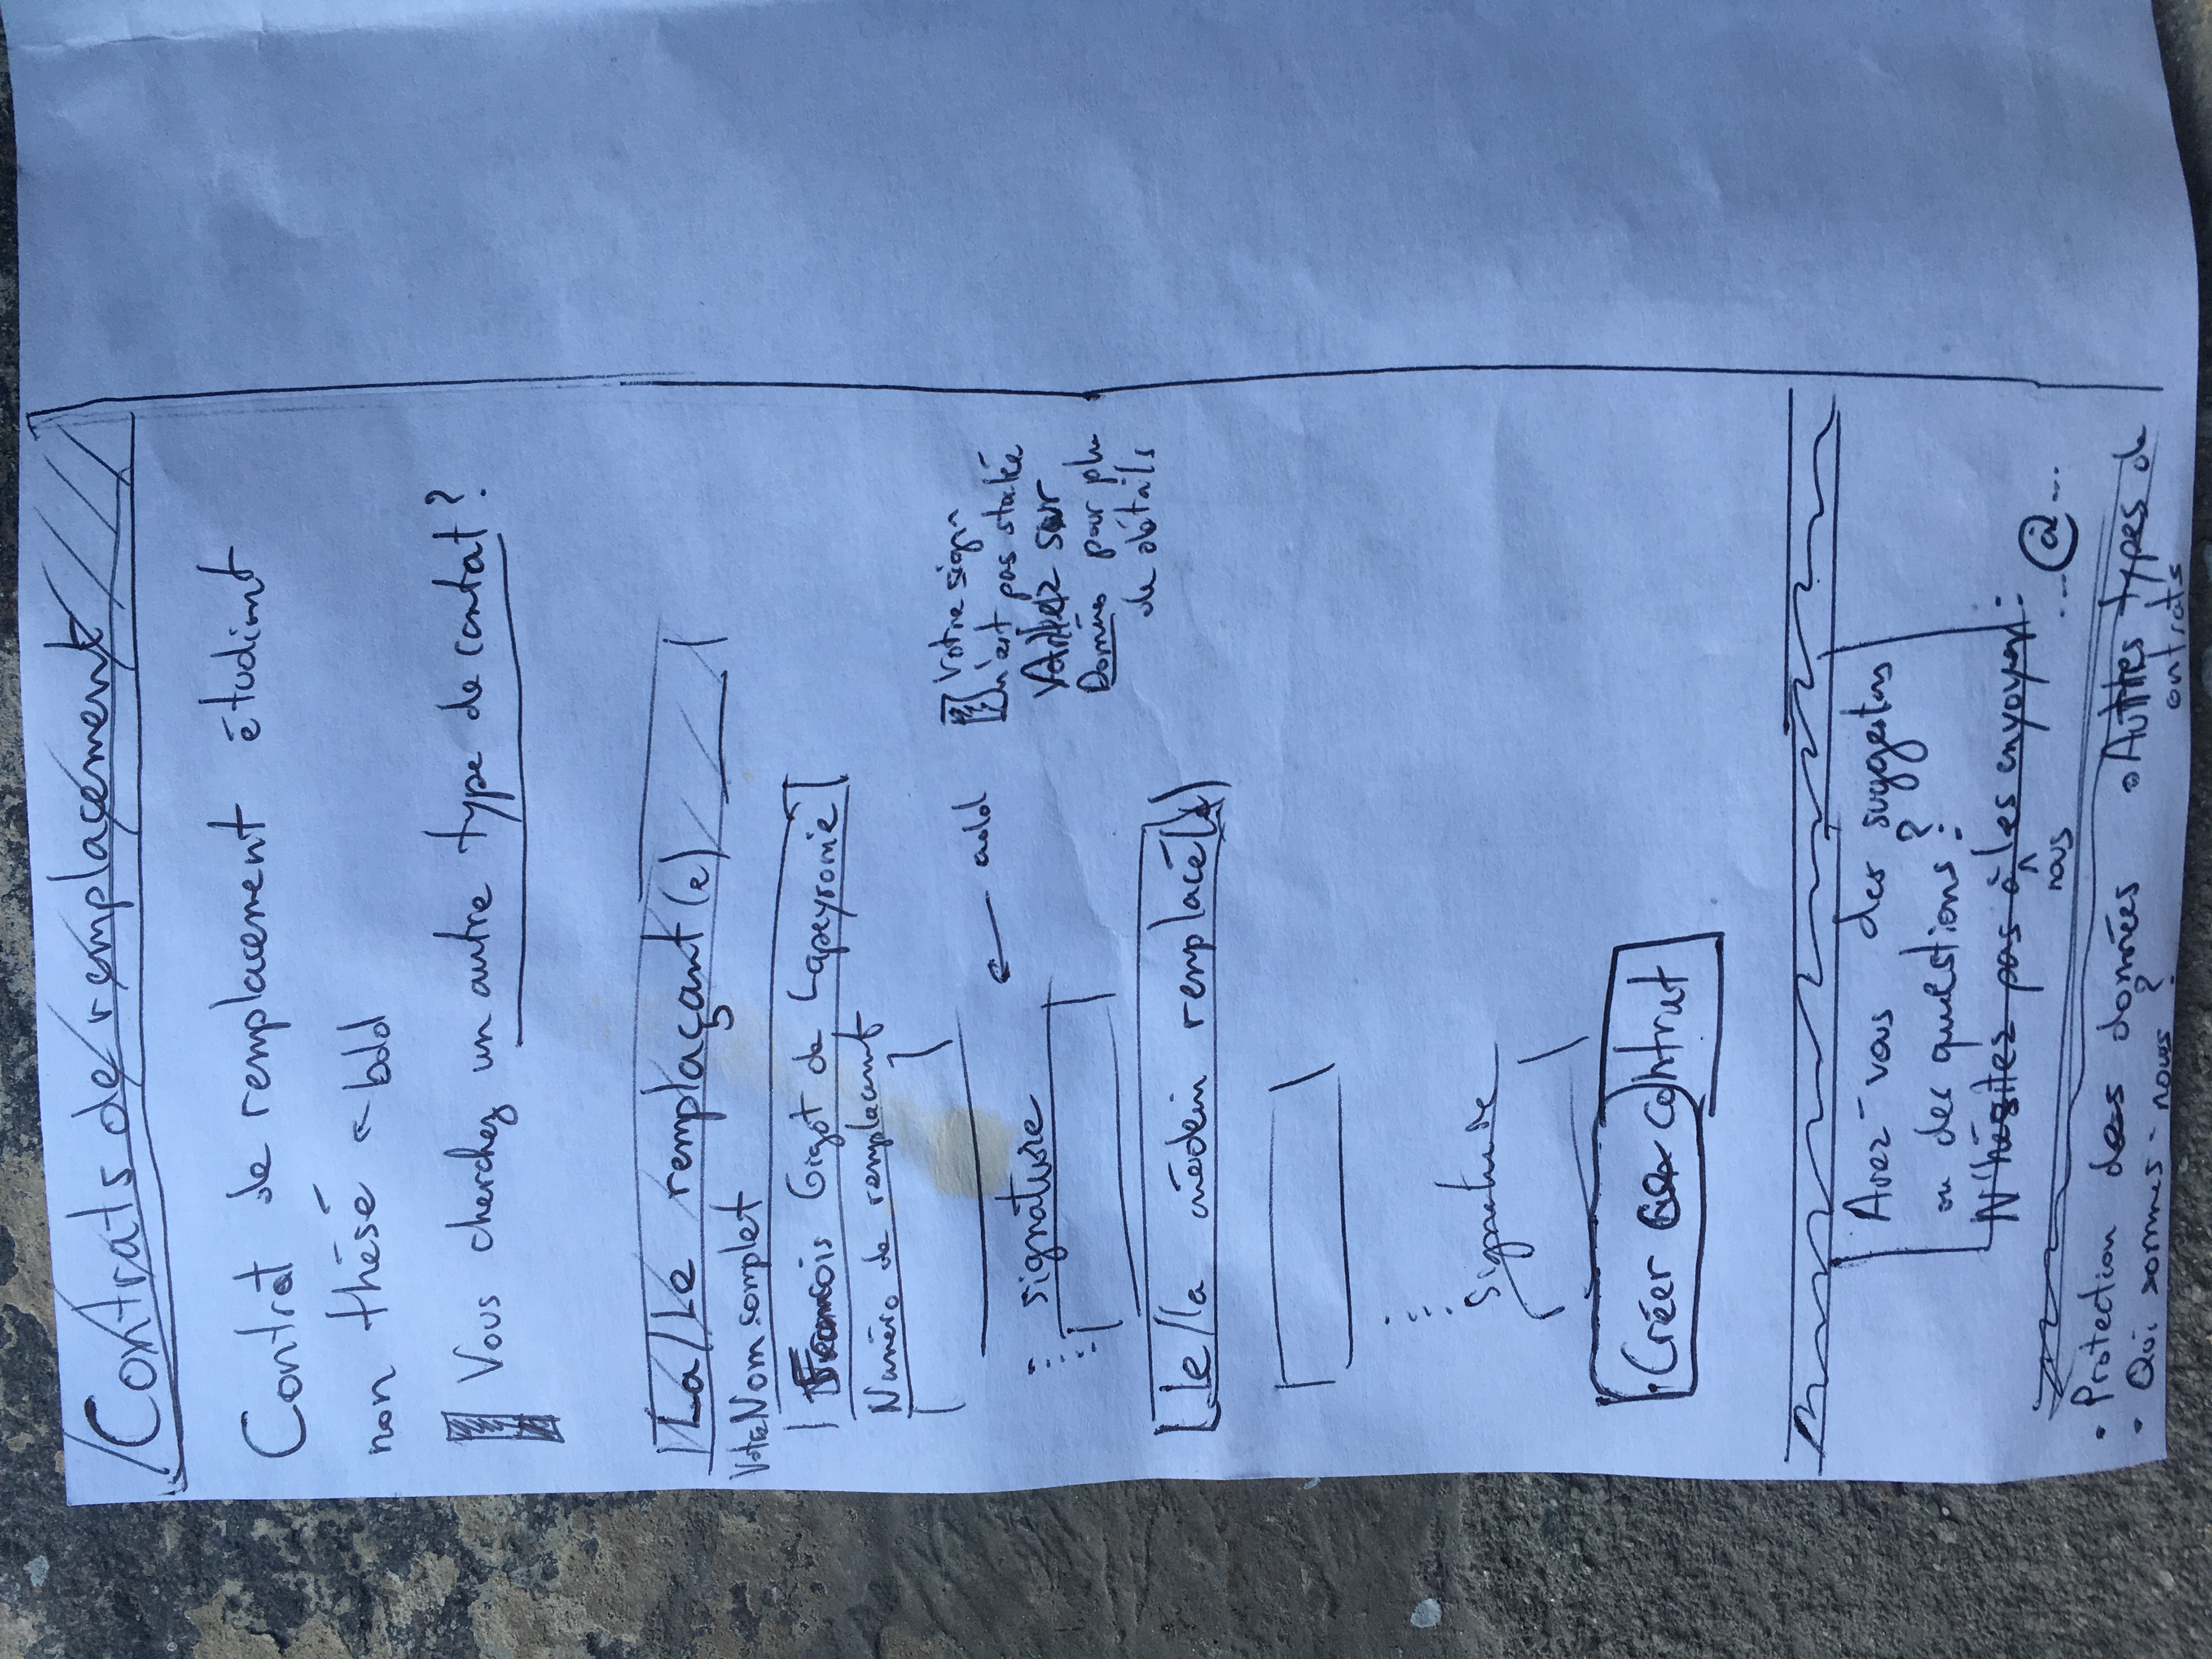 Contrats de remplacement
Contrat de remplacement étudiant
non thésé ← bold
Vous cherchez un autre type de contat ?
La/Le remplaçant(e)
Votre Nom complet
Francois Gigot de Lapeyronie
Numéro de remplacant
← add
signature
Votre sign
n'est pas stockée
Allez sur
Données pour plus
de détails
le/la médein remplacé(e)
signature
Créer contrat
Avez-vous des suggestions
ou des questions ?
N'hésitez pas à les envoyer :
nous
...@...
• Protection des données
• Qui sommes-nous ?
• Autres types de
contrats